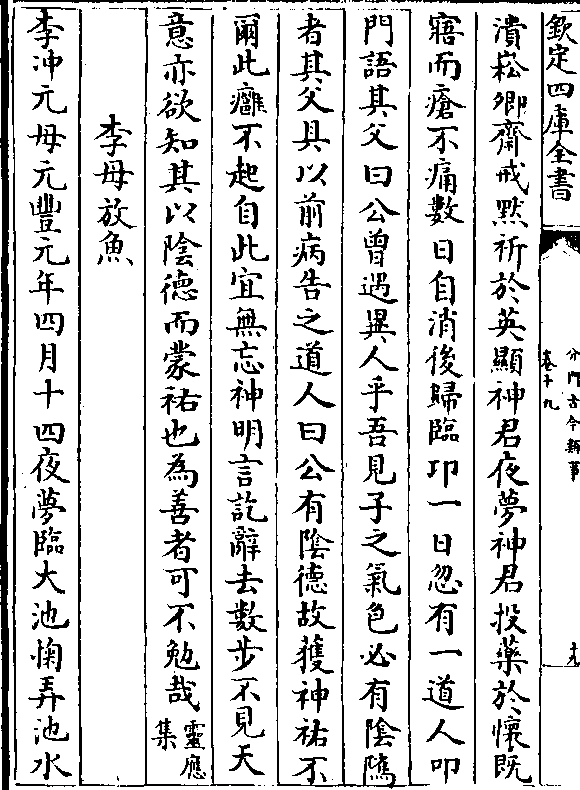 欽定四庫全書
分門古今類事
卷十九
十九
潰崧卿齋戒黙祈於英顯神君夜夢神君投藥於懷既
寤而瘡不痛數日自消後歸臨卭一日忽有一道人叩
門語其父曰公曾遇異人乎吾見子之氣色必有陰隲
者其父具以前病告之道人曰公有陰德故獲神祐不
爾此癰不起自此宜無忘神明言訖辭去數步不見天
意亦欲知其以陰德而蒙祐也為善者可不勉哉靈應集
李母放魚
李冲元母元豐元年四月十四夜夢臨大池掬弄池水